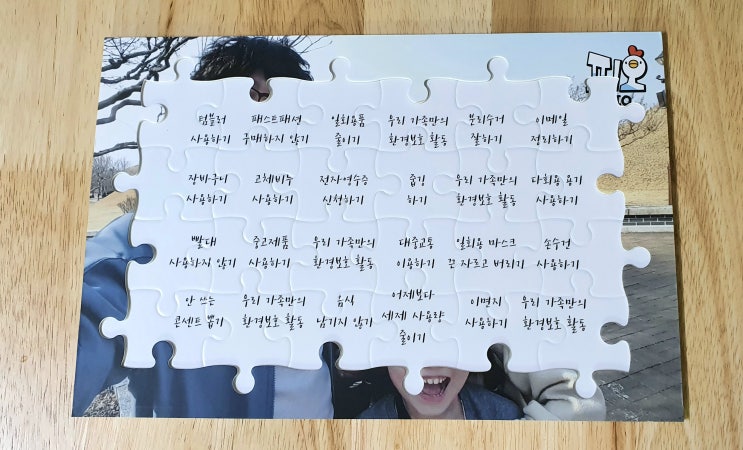 텀블러 패스트패션 일회용품 우리 가족만의 분리수거 이메일
사용하기 구매하지 않기 줄이기 환경보호 활동 잘하기 정리하기
장바구니 고체비누 전자영수증 줍깅 우리 가족만의 다회용 용기
사용하기 사용하기 신청하기 하기 환경보호 활동 사용하기
빨대 중고제품 우리 가족만의 대중교통 일회용 마스크 손수건
사용하지 않기 사용하기 환경보호 활동 이용하기 끈 자르고 버리기 사용하기
안 쓰는 우리 가족만의 음식 어제보다 이면지 우리 가족만의
콘센트 뽑기 환경보호 활동 남기지 않기 세제 사용량 사용하기 환경보호 활동
줄이기